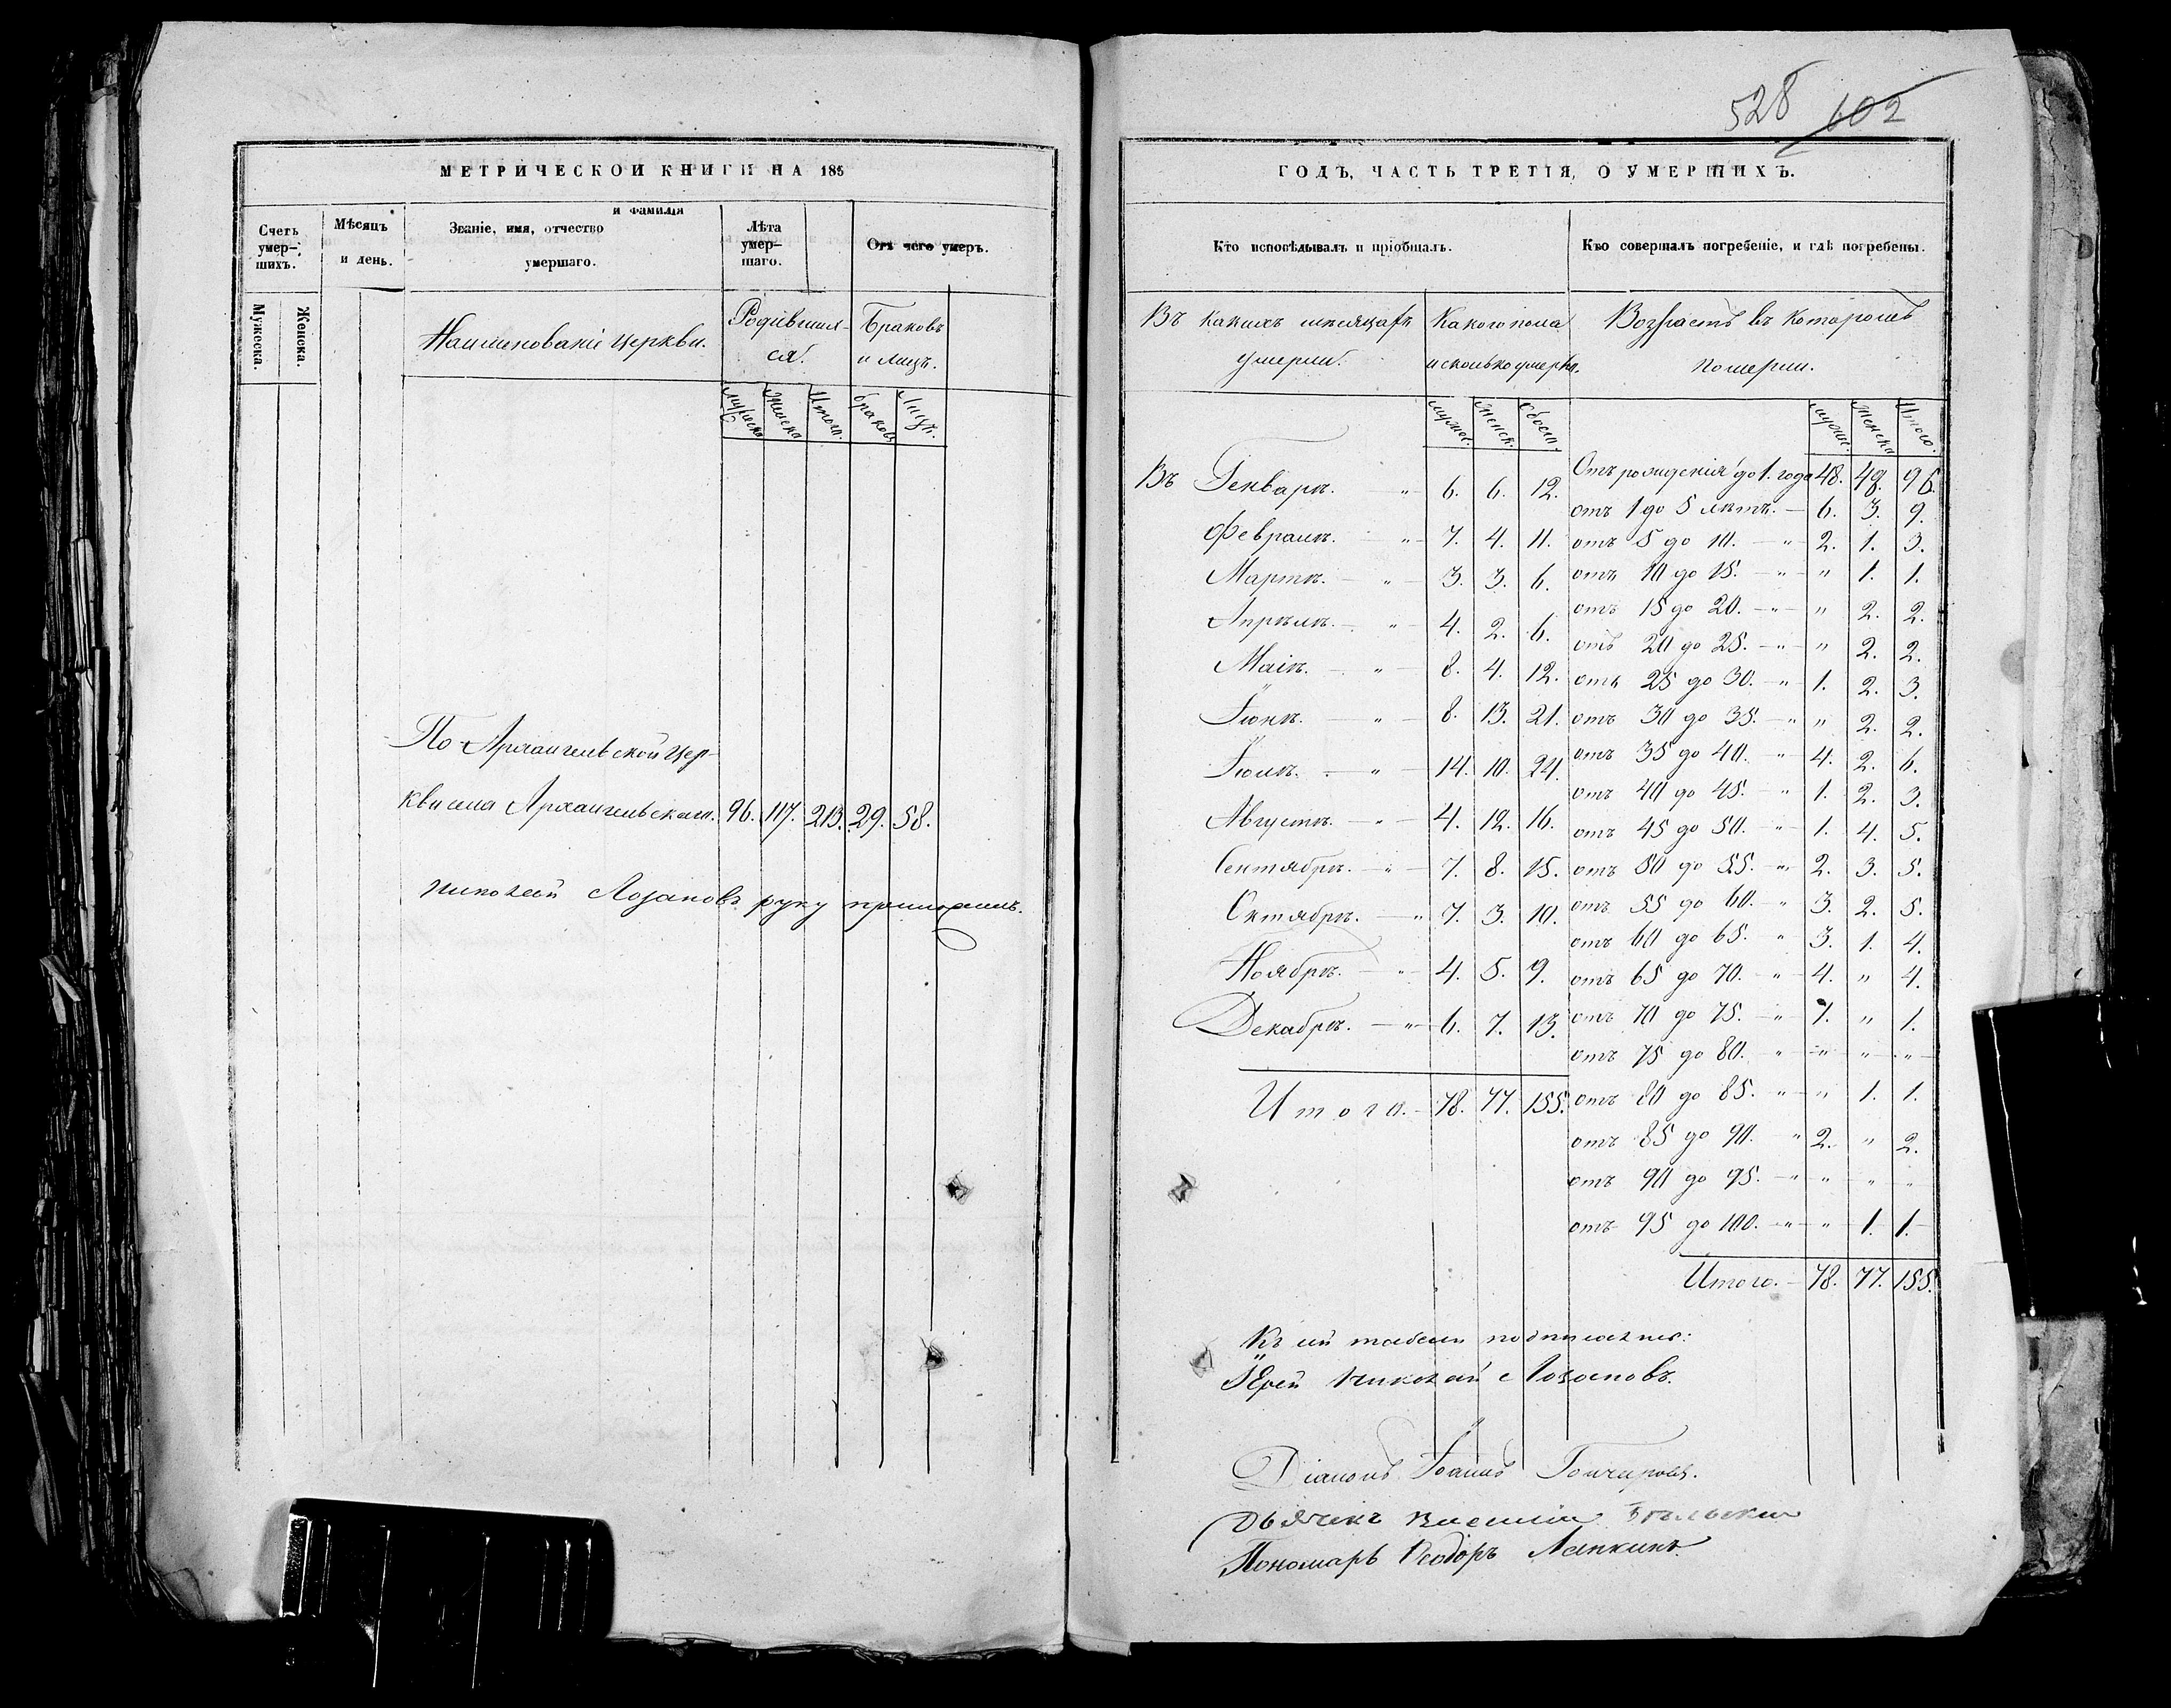 528 602
МЕТРИЧЕСКОЙ КНИГИ НА 185
Счетъ умер-шихъ.
Мѣсяцъ и день.
Званіе, имя, отчество и фамилія умершаго.
Лѣта умер-шаго.
Отъ чего умеръ.
Мужеска.
Женска.
Наименованіе церкви.
Родившихся.
Браковъ и лицъ.
мужеска женска Итого. браковъ Лицъ.
По Архангельской цер-
кви села Архангельскаго. 96. 117. 213. 29. 58.
Николай Лозановъ руку приложилъ.
ГОДЪ, ЧАСТЬ ТРЕТІЯ, О УМЕРШИХЪ.
Кто исповѣдывалъ и пріобщалъ.
Кто совершалъ погребеніе, и гдѣ погребены.
Въ какихъ мѣсяцахъ умерли.
Какого пола и сколько умерло.
Возрастъ въ которомъ померли.
мужес. женск. Обоего.
мужес. женска Итого.
Въ Генварѣ. " 6. 6. 12.
Февралѣ. " 7. 4. 11.
Мартѣ. " 3. 3. 6.
Апрѣлѣ. " 4. 2. 6.
Маіѣ. " 8. 4. 12.
Іюнѣ. " 8. 13. 21.
Іюлѣ. " 14. 10. 24.
Августѣ. " 4. 12. 16.
Сентябрѣ. " 7. 8. 15.
Октябрѣ. " 7. 3. 10.
Ноябрѣ. " 4. 5. 9.
Декабрѣ. " 6. 7. 13.
Итого. 78. 77. 155.
Отъ рожденія до 1. года 48. 48. 96.
отъ 1 до 5 лѣтъ. 6. 3. 9.
отъ 5 до 10. " 2. 1. 3.
отъ 10 до 15. " " 1. 1.
отъ 15 до 20. " " 2. 2.
отъ 20 до 25. " " 2. 2.
отъ 25 до 30. " 1. 2. 3.
отъ 30 до 35. " " 2. 2.
отъ 35 до 40. " 4. 2. 6.
отъ 40 до 45. " 1. 2. 3.
отъ 45 до 50. " 1. 4. 5.
отъ 50 до 55. " 2. 3. 5.
отъ 55 до 60. " 3. 2. 5.
отъ 60 до 65. " 3. 1. 4.
отъ 65 до 70. " 4. " 4.
отъ 70 до 75. " 1. " 1.
отъ 75 до 80. " " " "
отъ 80 до 85. " " 1. 1.
отъ 85 до 90. " 2. " 2.
отъ 90 до 95. " " " "
отъ 95 до 100. " " 1. 1.
Итого. 78. 77. 155.
Къ сей табели подписались:
Іерей Николай Лозановъ.
Діаконъ Іоаннъ Гончаровъ.
Дьячекъ Василій
Пономарь Ѳеодоръ Лапкинъ.